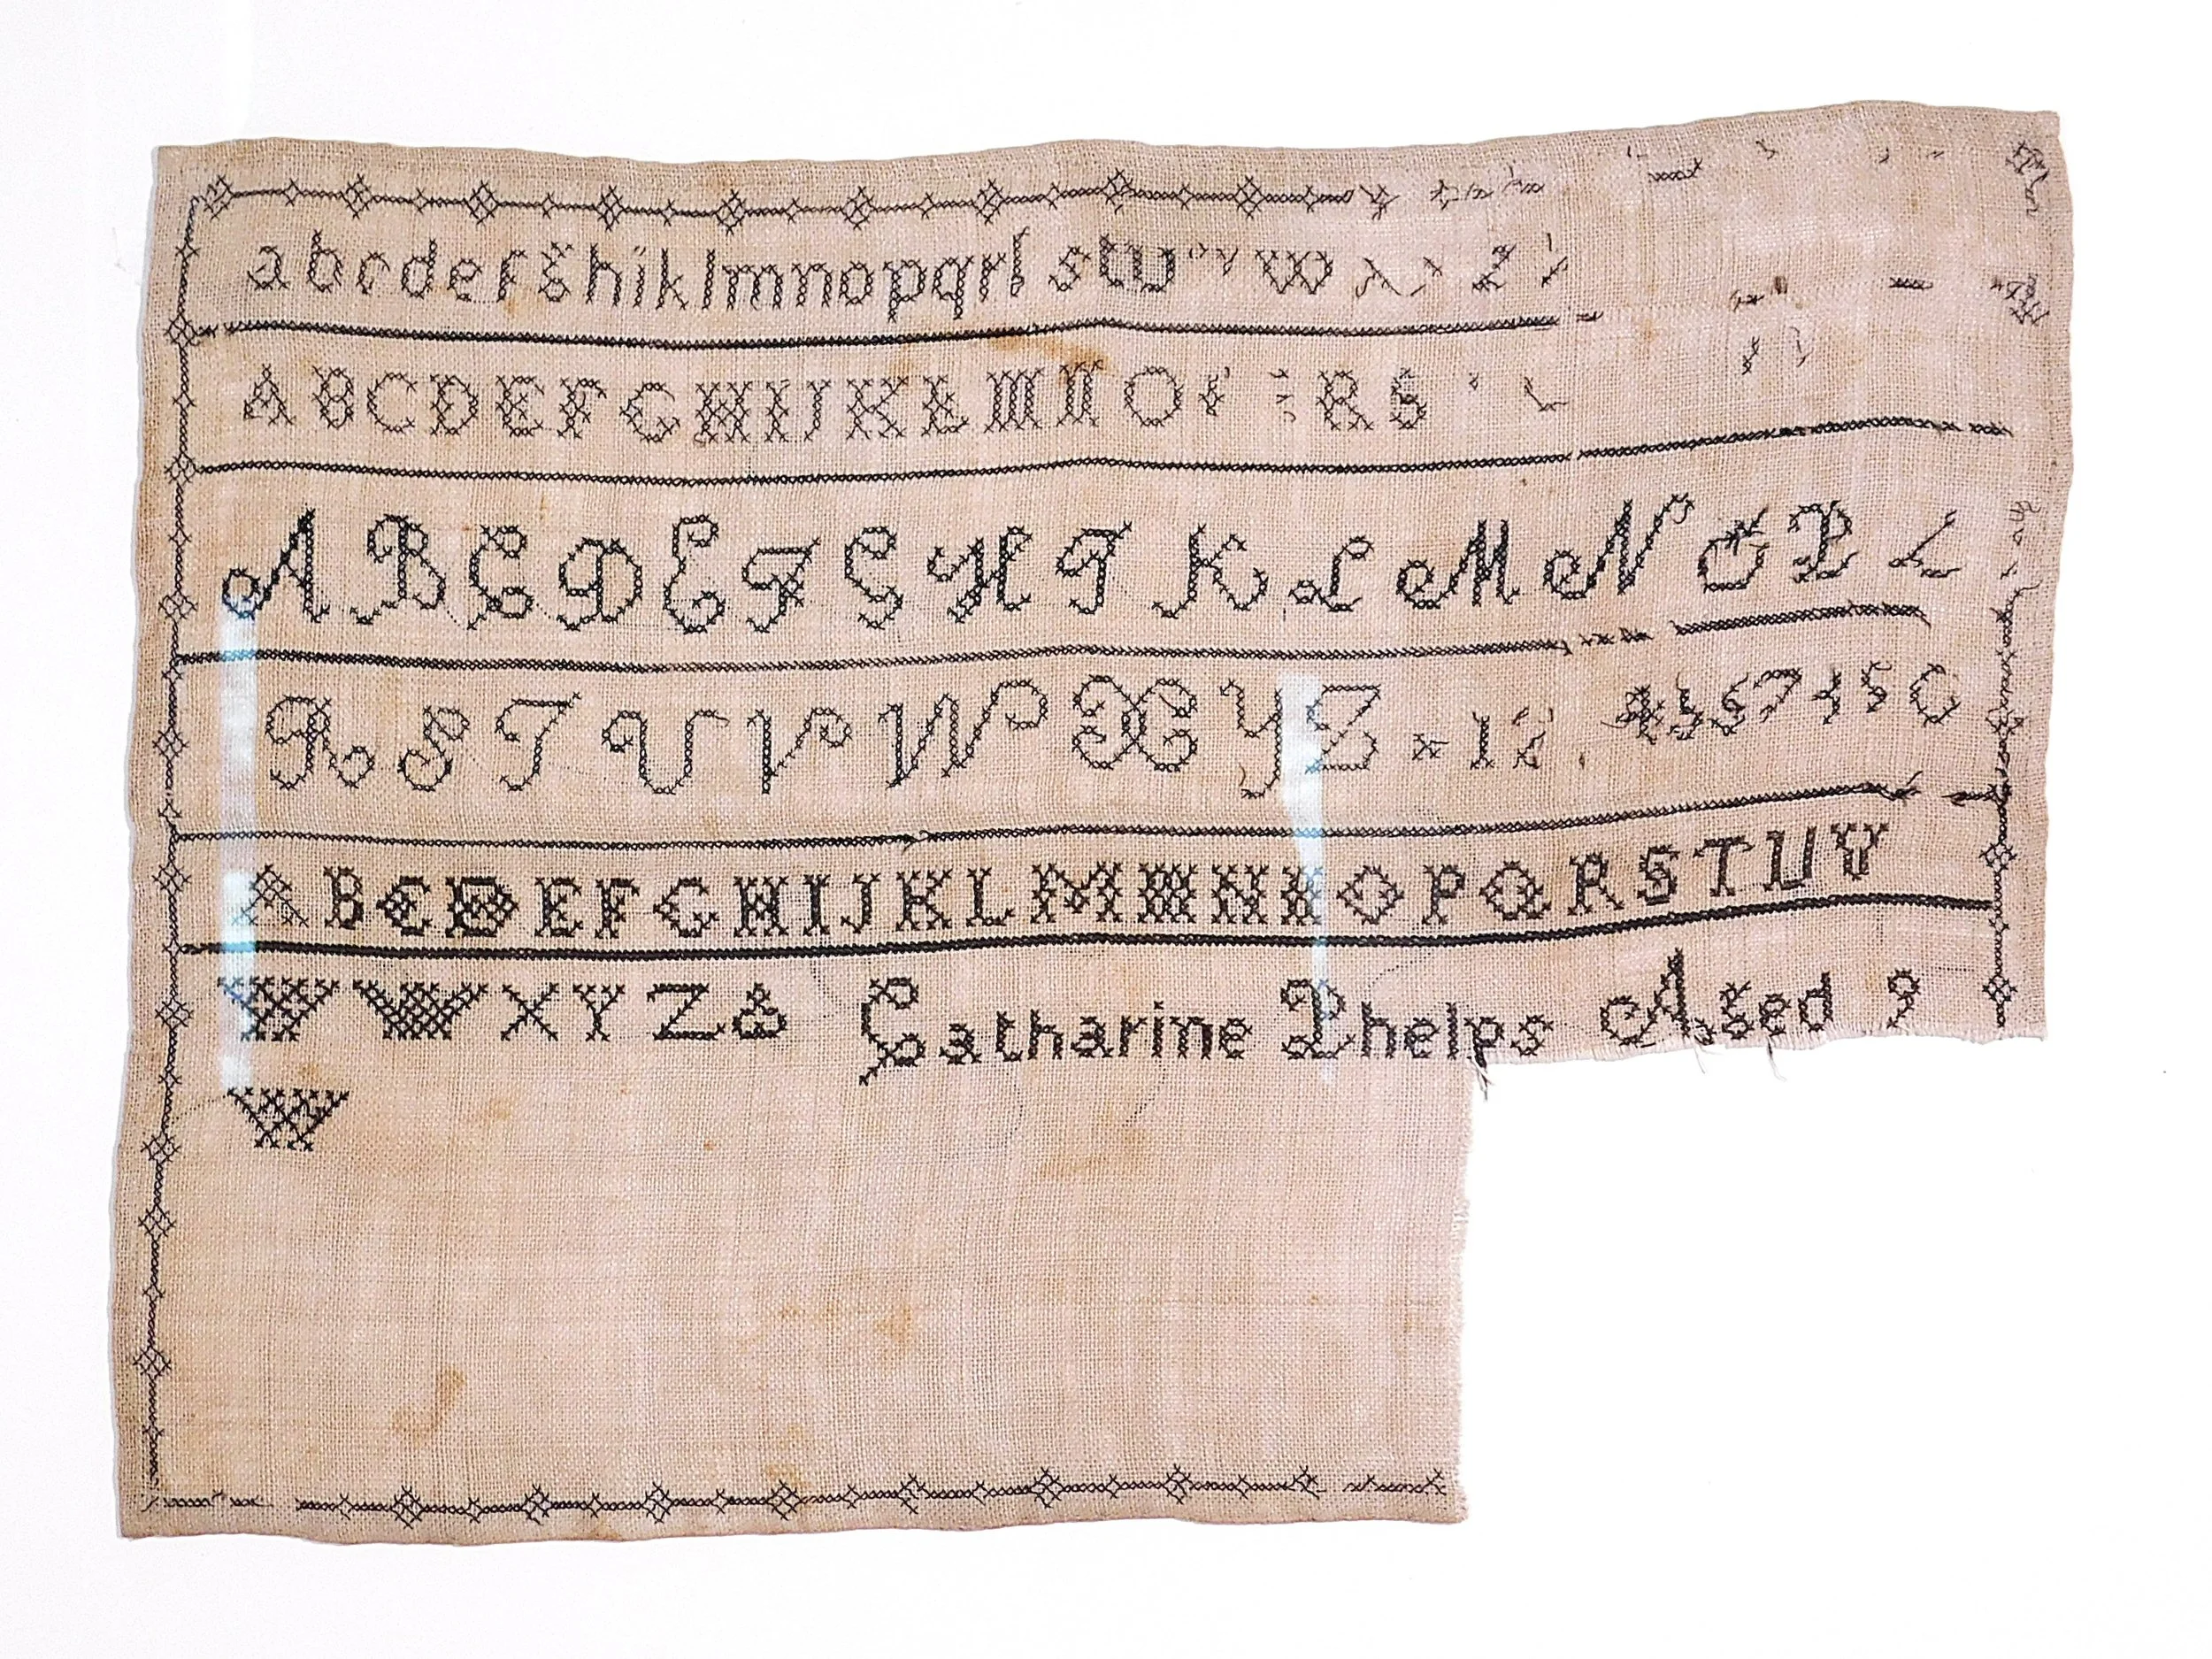 a b c d e f g h i k l m n o p q r ſ s t u v w x y z
A B C D E F G H I J K L M N O P Q R S
A B C D E F G H I K L M N O P
R S T U V W X Y Z 1 2
A B C D E F G H I J K L M M N N O P Q R S T U V
W W X Y Z & Catharine Phelps Aged 9
W